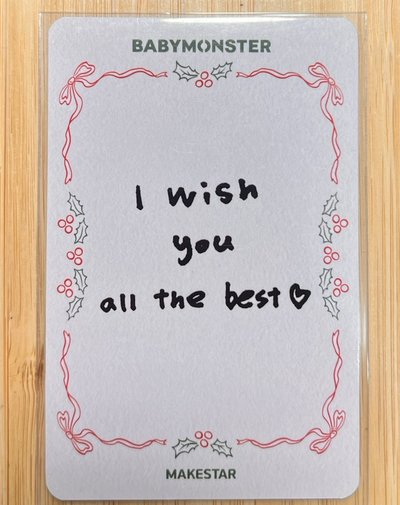 BABYMONSTER
I wish
you
all the best♡
MAKESTAR